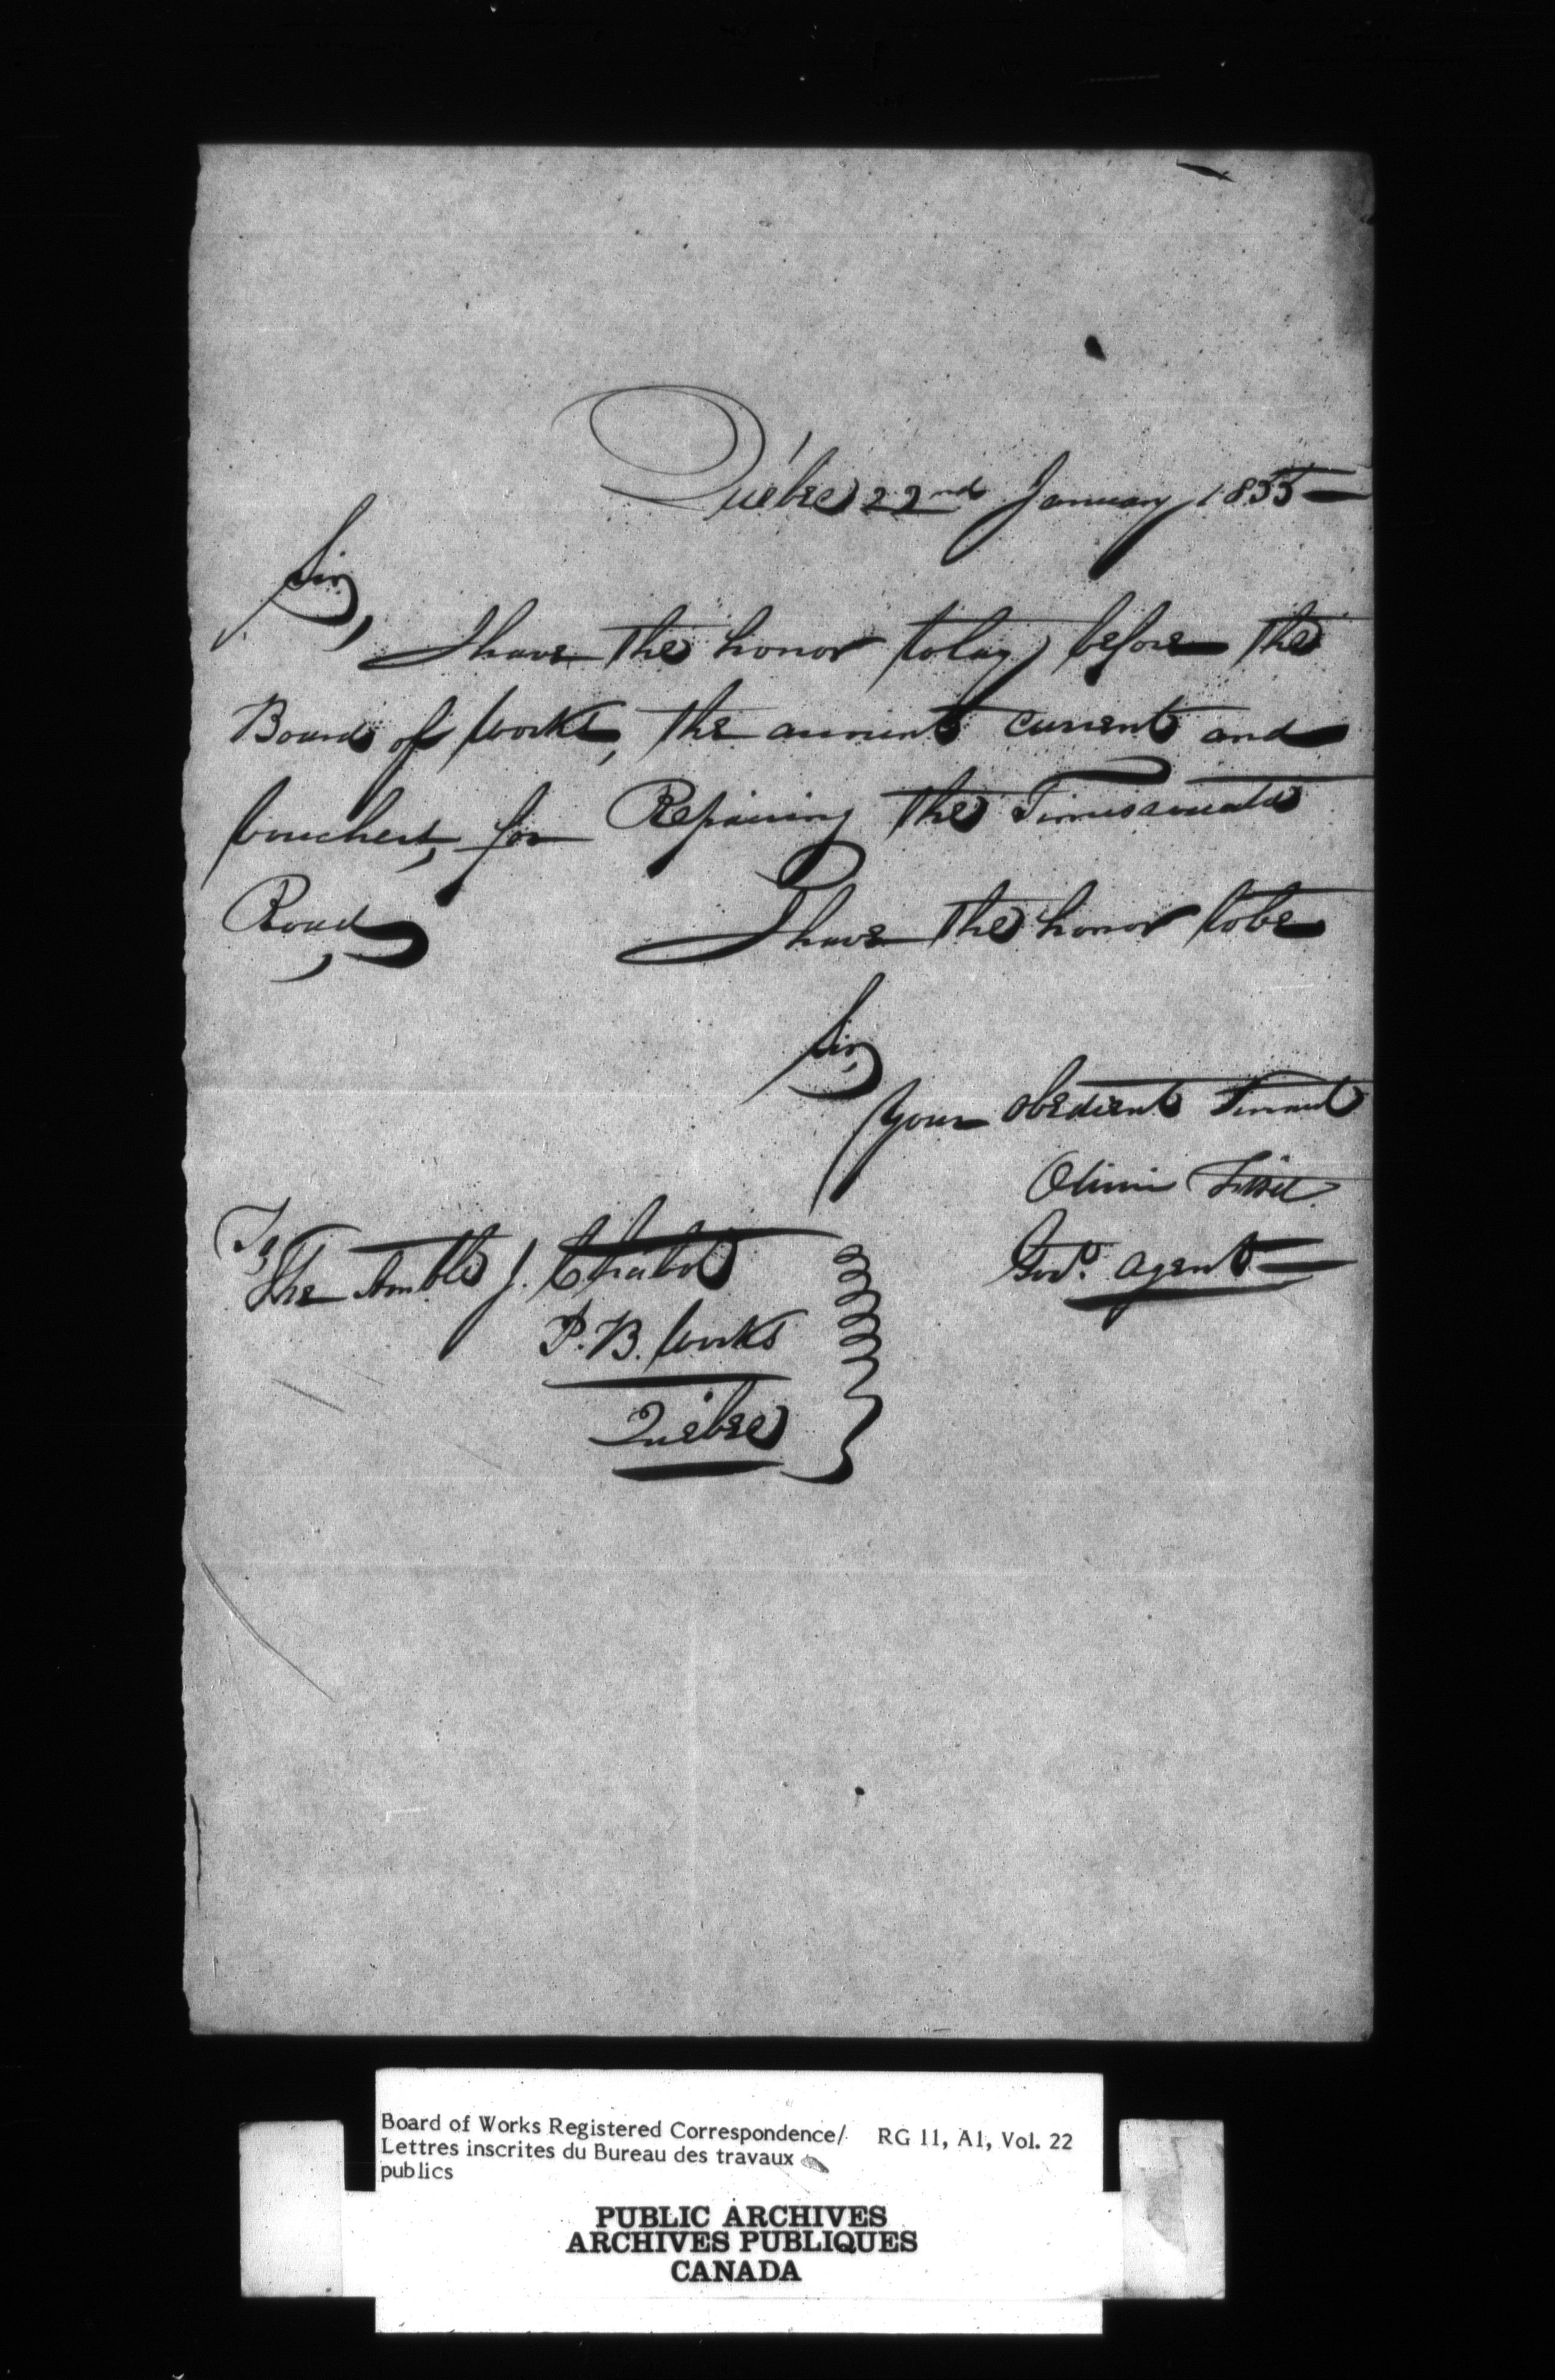 Québec 22nd January 1855
Sir,
I have the honor to lay before the
Board of Works, the account current and
vouchers, for Repairing the Timiscouata
Road,
I have the honor to be
Sir,
Your obedient Servant
Olivier
Govt. Agent
To
The Honble J. Chabot
P. B. Works
Québec
Board of Works Registered Correspondence/ RG 11, A1, Vol. 22
Lettres inscrites du Bureau des travaux
publics
PUBLIC ARCHIVES
ARCHIVES PUBLIQUES
CANADA